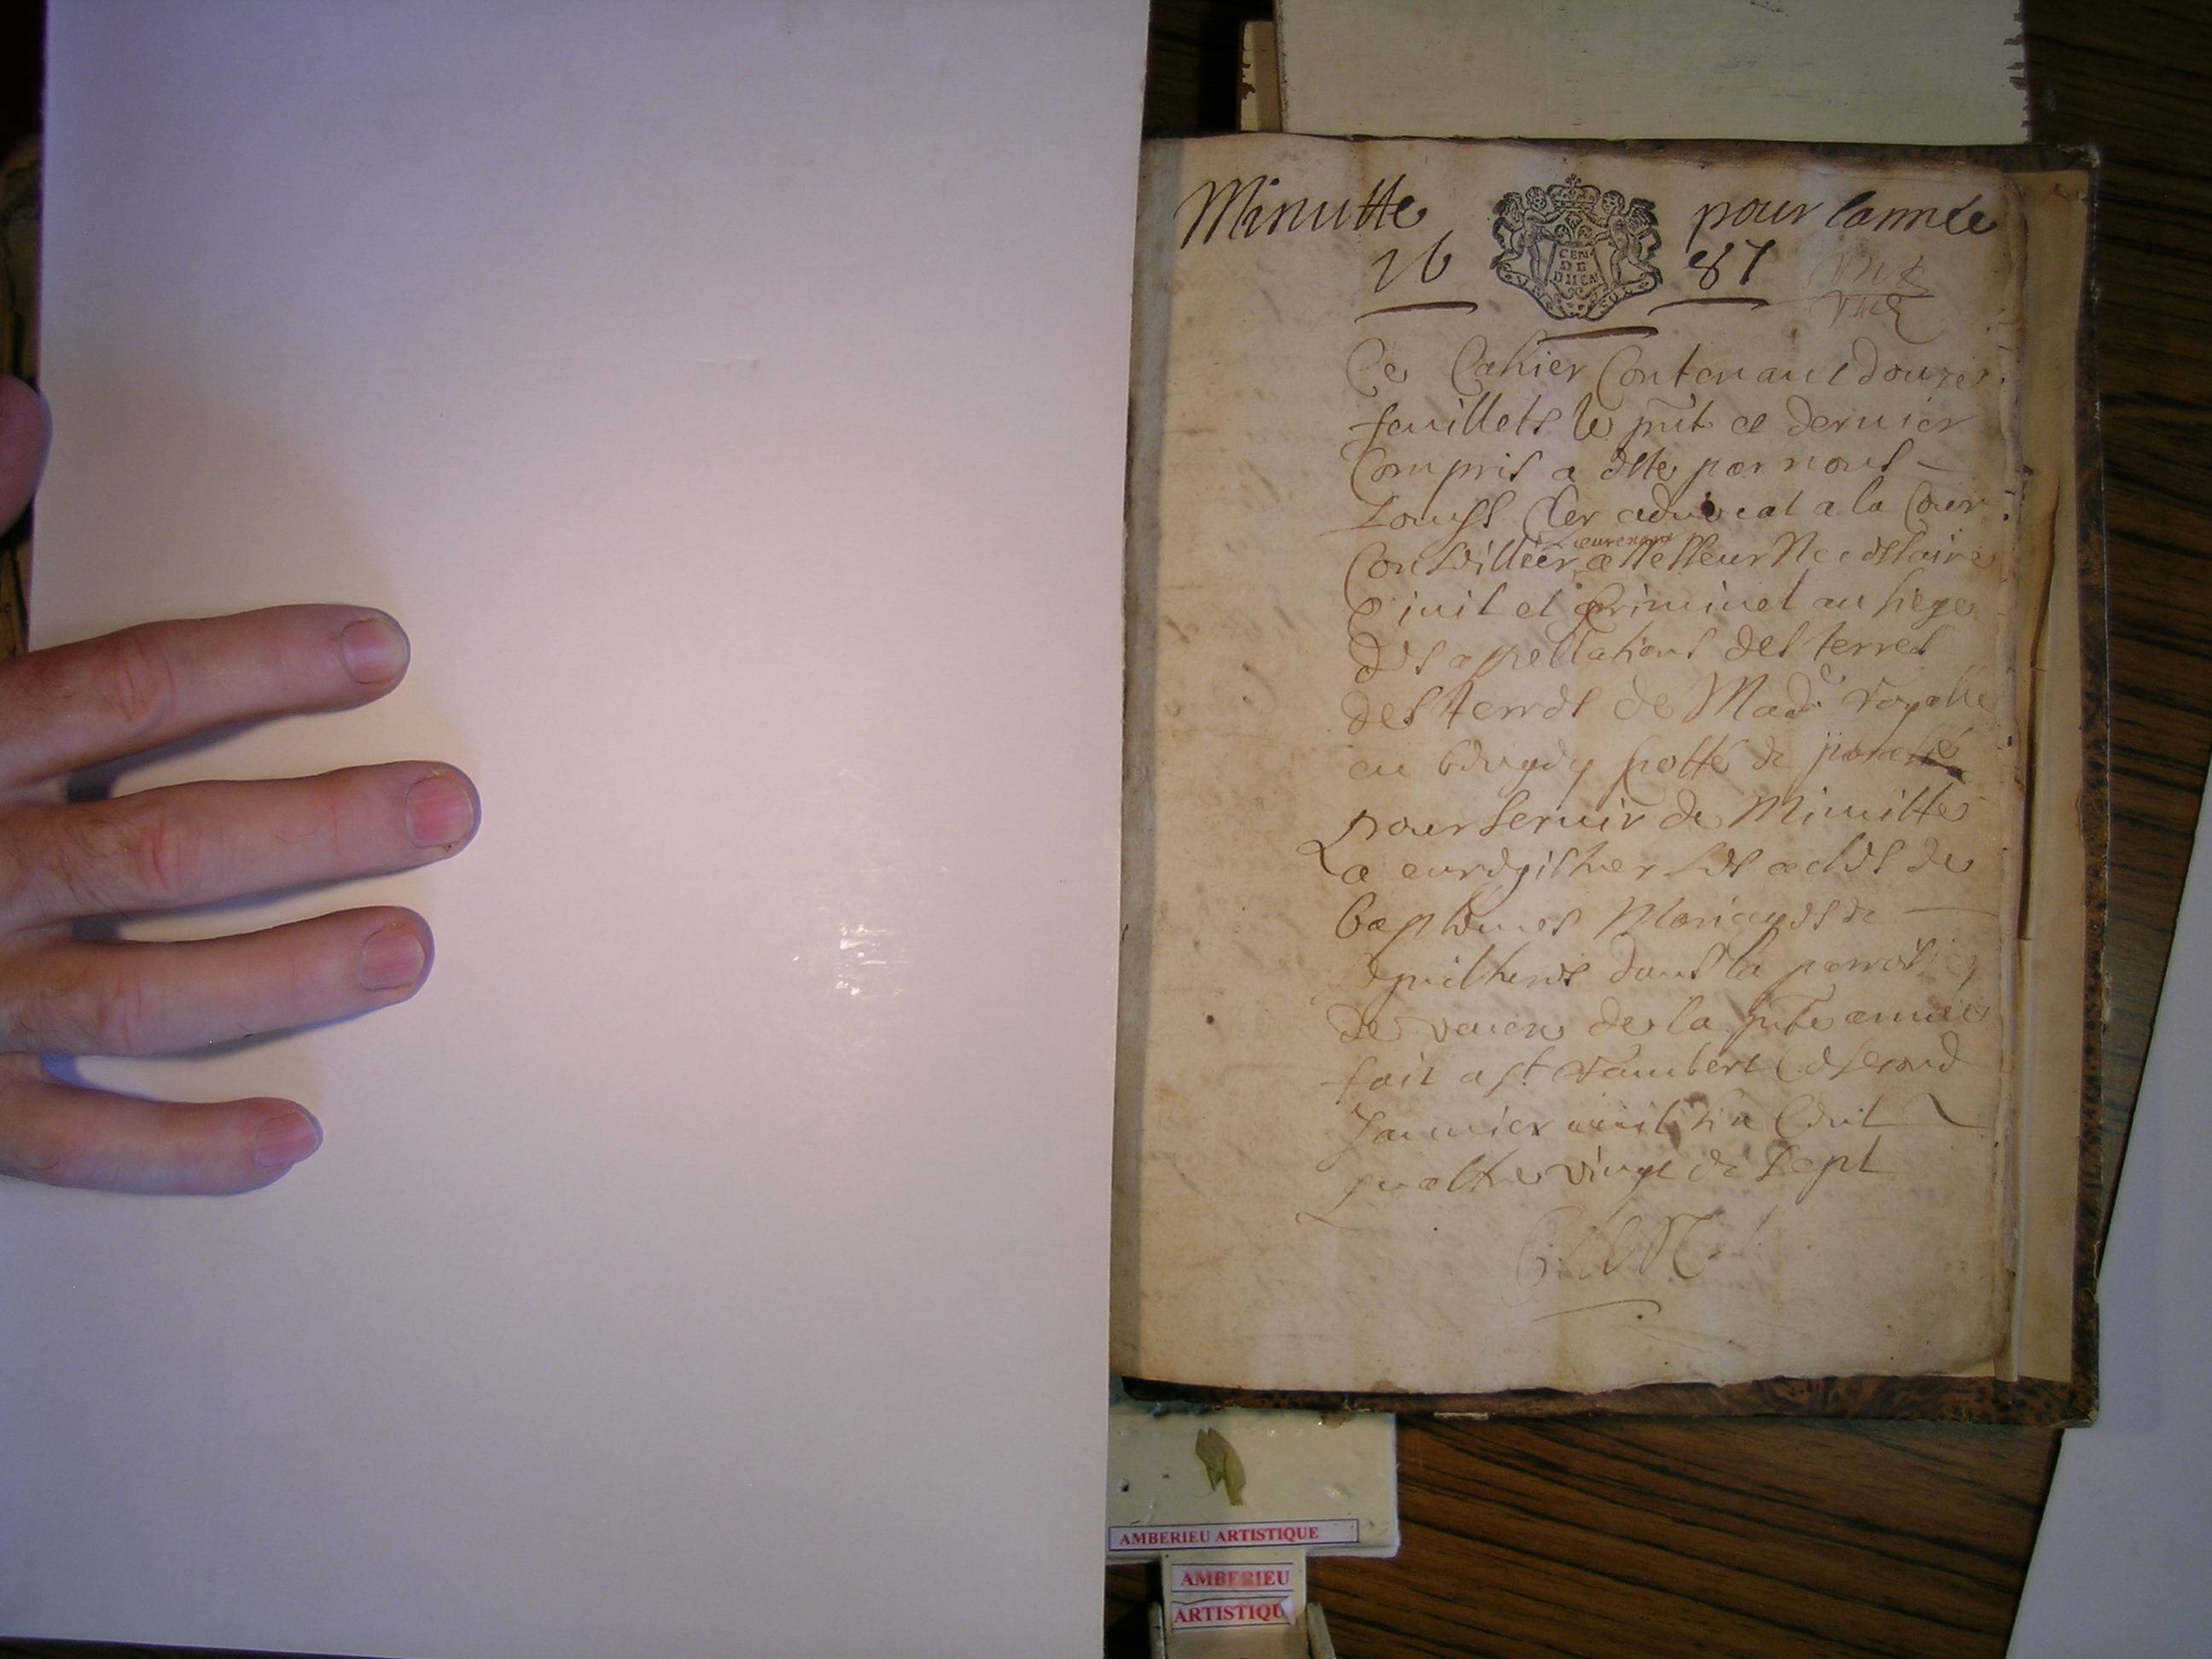 Minutte pour lannée
16 87
CEN
DE
Ce Cahier Contenant douze
feuillets le pnt et dernier
Compris a este par nous
advocat a la Cour
Conseiller assesseur
Civil et Criminel au siege
des appellations des terres
des terres de Made Royalle
en bugey cotté &
pour servir de Minutte
a enregistrer les actes de
baptemes Mariages &
sepultures dans la parroisse
de de la pnte année
fait a st Rambert Ce second
Janvier mil six Cent
quattre vingt & sept
AMBERIEU ARTISTIQUE
AMBERIEU
ARTISTIQU